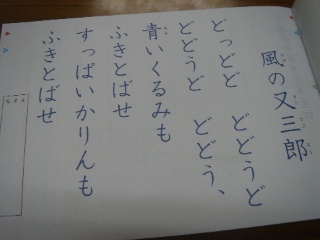 風の又三郎
どっどど どどうど
どどうど どどう、
青いくるみも
ふきとばせ
すっぱいかりんも
ふきとばせ